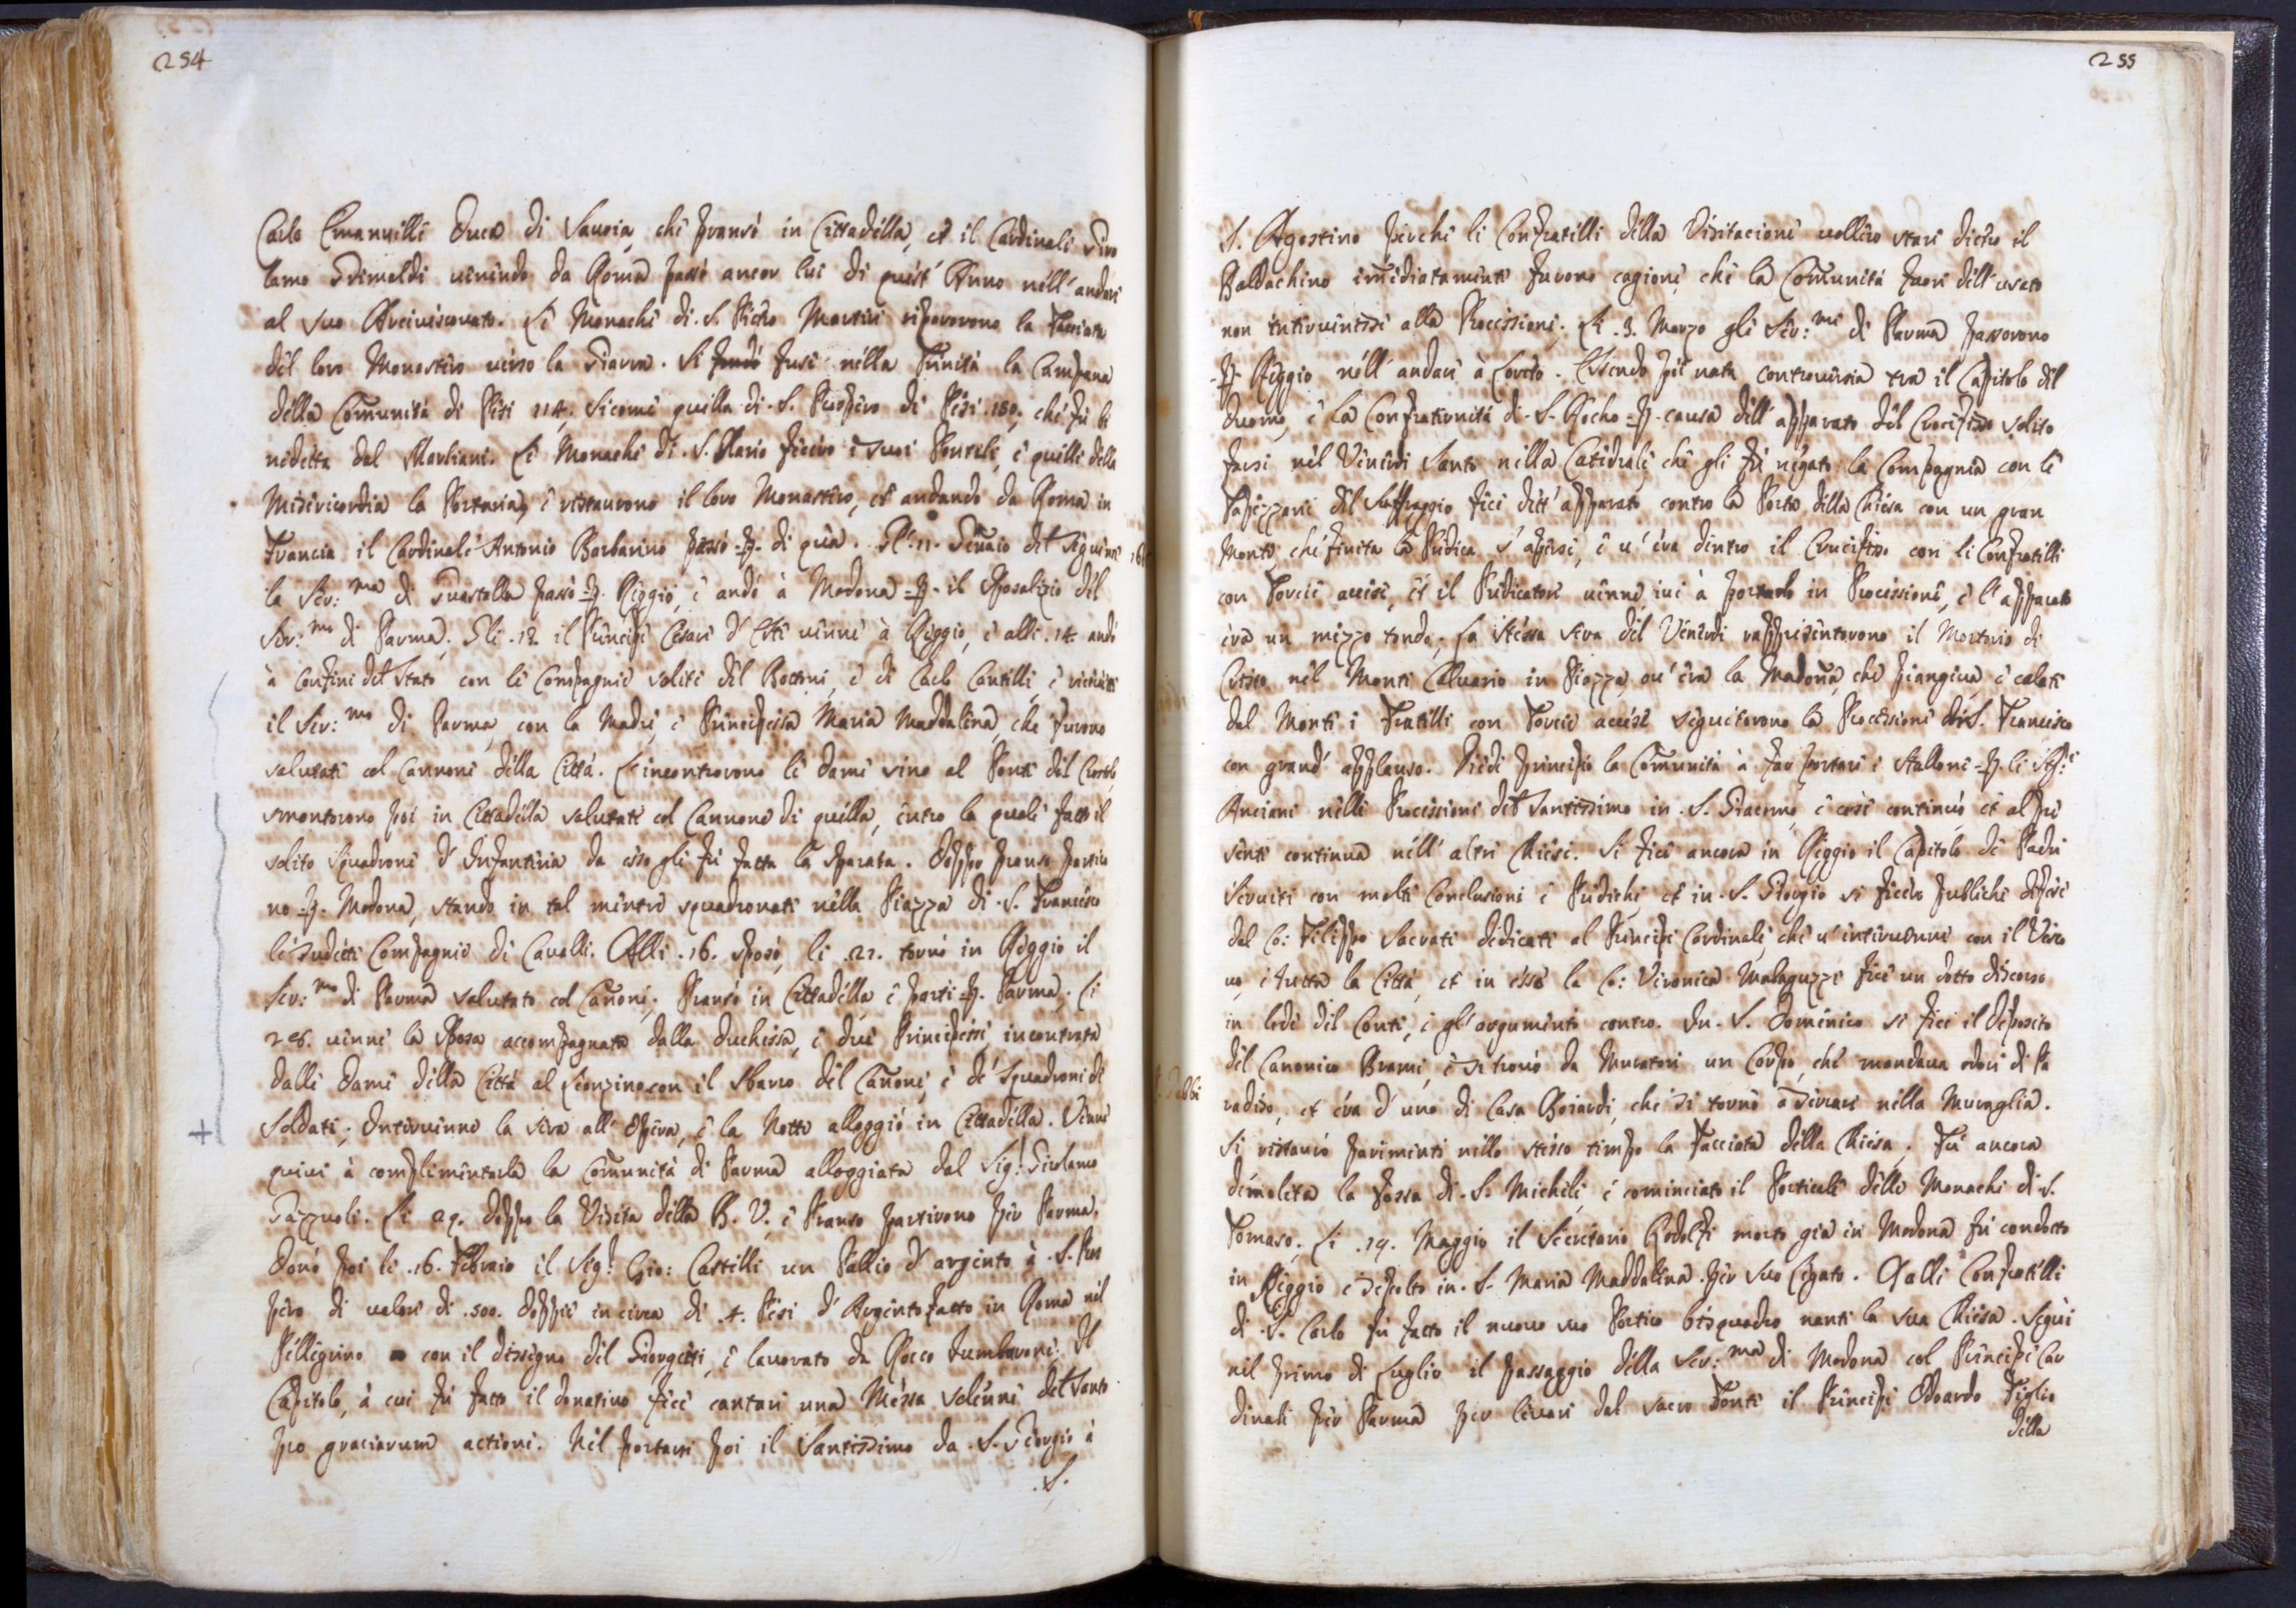 254
Carlo Emanuelle Duca di Savoia, che pransò in Cittadella, et il Cardinale Giro
lamo Grimaldi venendo da Roma passò ancor lui di quest' Anno nell' andare
al suo Arcivescovato. Li Monachi di S. Pietro Martire riporovono la Facciata
del loro Monastero verso la Giarra. Si fondò fuse nella Trinità la Campana
della Com̃unità di Pesi 114, sicome quella di S. Prospero di Pesi 180, che fù be
nedetta dal Marliani. Le Monache di S. Ilario fecero i suoi Porteli, e quelle della
Misericordia la Portaria, e ristaurono il loro Monastero, et andando da Roma in
Francia il Cardinale Antonio Barbarino passò p. di quà. Gl' 11. Gen̄aio del seguente
la Ser:ma di Guastalla passò p. Reggio, e andò à Modona p. il Sposalizio del
Ser:mo di Parma. Gli 12. il Prencipe Cesare d' Este venne à Reggio, e alli 14. andò
à Confini del Stato con le Compagnie solite del Bottoni, e di Carlo Cantelli, e ricevette
il Ser:mo di Parma, con la Madre, e Principessa Maria Maddalena, che furono
salutati col Cannone della Città. L' incontrorono le Dame sino al Ponte del Crostolo,
smontorono poi in Cittadella salutati col Cannone di quella, entro la quale fatto il
solito squadrone d' Infantaria da esso gli fù fatta la sparata. Doppo pranso partiro
no p. Modona, stando in tal mentre squadronate nella Piazza di S. Francesco
le sudette Compagnie di Cavalli. Alli 16. sposò, li 21. tornò in Reggio il
Ser:mo di Parma salutato col Can̄one, Pransò in Cittadella e partì p. Parma. Li
28. venne la Sposa accompagnata dalla Duchessa, e due Principesse, incontrata
dalle Dame della Città al Scorzino con il sbarro del Can̄one, e de' Squadroni di
Soldati. Intervenne la sera all' Opera, e la Notte alloggiò in Cittadella. Venne
quivi à complimentarla la Com̃unità di Parma alloggiata dal Sig:r Girolamo
Taccoli. Li 29. doppo la Visita della B. V. e Pranso partirono per Parma.
Donò poi li 16. Febraio il Sig:r Gio: Castelli un Pallio d' argento à S. Pros
pero di valore di 500. doppie in circa di 4. Pesi d' Argento fatto in Roma nel
Pellegrino con il dissegno del Giorgetti, e lavorato da Rocco Tumbaroni. Il
Capitolo, à cui fù fatto il donativo fece cantare una Messa solenne del Santo
pro graciarum actione. Nel portarsi poi il Santissimo da S. Giorgio à
S.
255
S. Agostino perche li Confratelli della Visitacione vollero stare dietro il
Baldachino im̃ediatamente furono cagione, che la Com̃unità fuori dell' usato
non intervenisse alla Processione. Li 3. Marzo gli Ser:mi di Parma passorono
p. Reggio nell' andare à Loreto. Essendo poi nata controversia tra il Capitolo del
Duomo, e la Confraternità di S. Rocho p. causa dell' apparato del Crocifisso solito
farsi nel Venerdi Santo nella Catedrale, che gli fù negato la Compagnia con le
Tapezzarie del Suffraggio fece dett' apparato contro la Porta della Chiesa con un gran
Monte, che finita la Predica s' aperse, e v' era dentro il Crucifisso con li Confratelli
con Torcie accese, et il Predicatore venne ivi à portarlo in Processione, e l' apparato
era un mezzo tondo. La stessa sera del Venerdi rappresentorono il Mortorio di
Cristo nel Monte Calvario in Piazza, ov' era la Madon̄a, che piangeva, e calati
dal Monte i Fratelli con Torcie accese seguitorono la Processione di S. Francesco
con grand' applauso. Diede principio la Com̃unità à far portare i Stalloni p. li Sig:ri
Anciani nelle Processioni del Santissimo in S. Giacomo, e così continuò et al pre
sente continua nell' altre Chiese. Si fece ancora in Reggio il Capitolo de Padri
Serviti con molte Conclusioni e Prediche, et in S. Giorgio si fecero publiche difese
dal Co: Filippo Sacrati dedicate al Principe Cardinale, che v' intervenne con il Vesco
vo, e tutta la Città, et in esse la Co: Veronica Malaguzzi fece un dotto discorso
in lode del Conte, e gl' argumentò contro. In S. Domenico si fece il deposito
del Canonico Brami, e si trovò da Muratori un Corpo, che mandava odore di Pa
radiso, et era d' uno di Casa Boiardi, che si tornò a serrare nella Muraglia.
Si ristaurò parimenti nello stesso tempo la Facciata della Chiesa. Fù ancora
demolita la fossa di S. Michele, e cominciato il Porticale delle Monache di S.
Tomaso. Li 19. Maggio il Secretario Rodolfi morto già in Modona fù condotto
in Reggio e sepolto in S. Maria Maddalena per suo Legato. Dalli Confratelli
di S. Carlo fù fatto il nuovo suo Portico bisquadro nanti la sua Chiesa. Seguì
nel primo di Luglio il passaggio della Ser:ma di Modona col Principe Car
dinale per Parma per levare dal sacro Fonte il Principe Odoardo Figlio
della